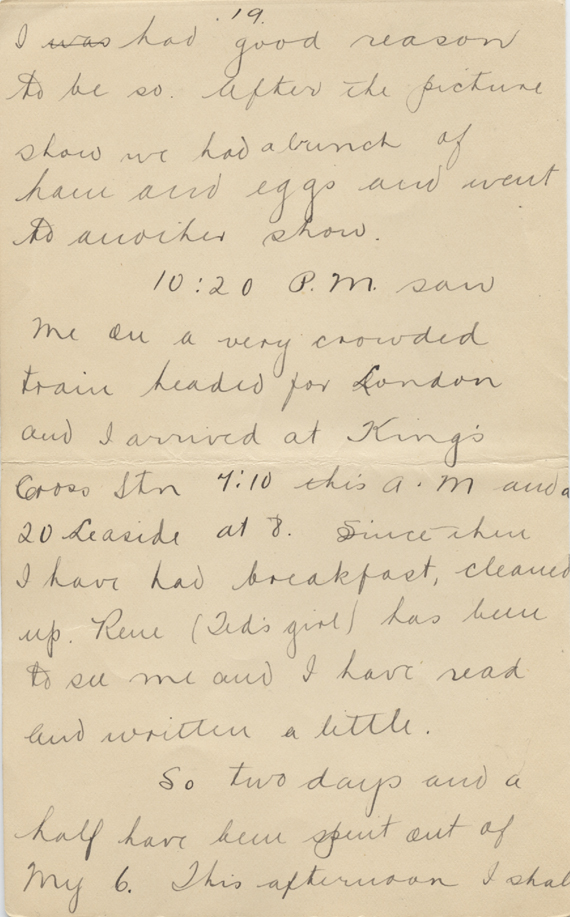 19.
I was had good reason
to be so. After the picture
show we had a bunch of
ham and eggs and went
to another show.
10:20 P.M. saw
me on a very crowded
train headed for London
and I arrived at King's
Cross Stn 7:10 this A.M and a
20 Leaside at 8. Since then
I have had breakfast, cleaned
up. Rene (Ted's girl) has been
to see me and I have read
and written a little.
So two days and a
half have been spent out of
my 6. This afternoon I shal